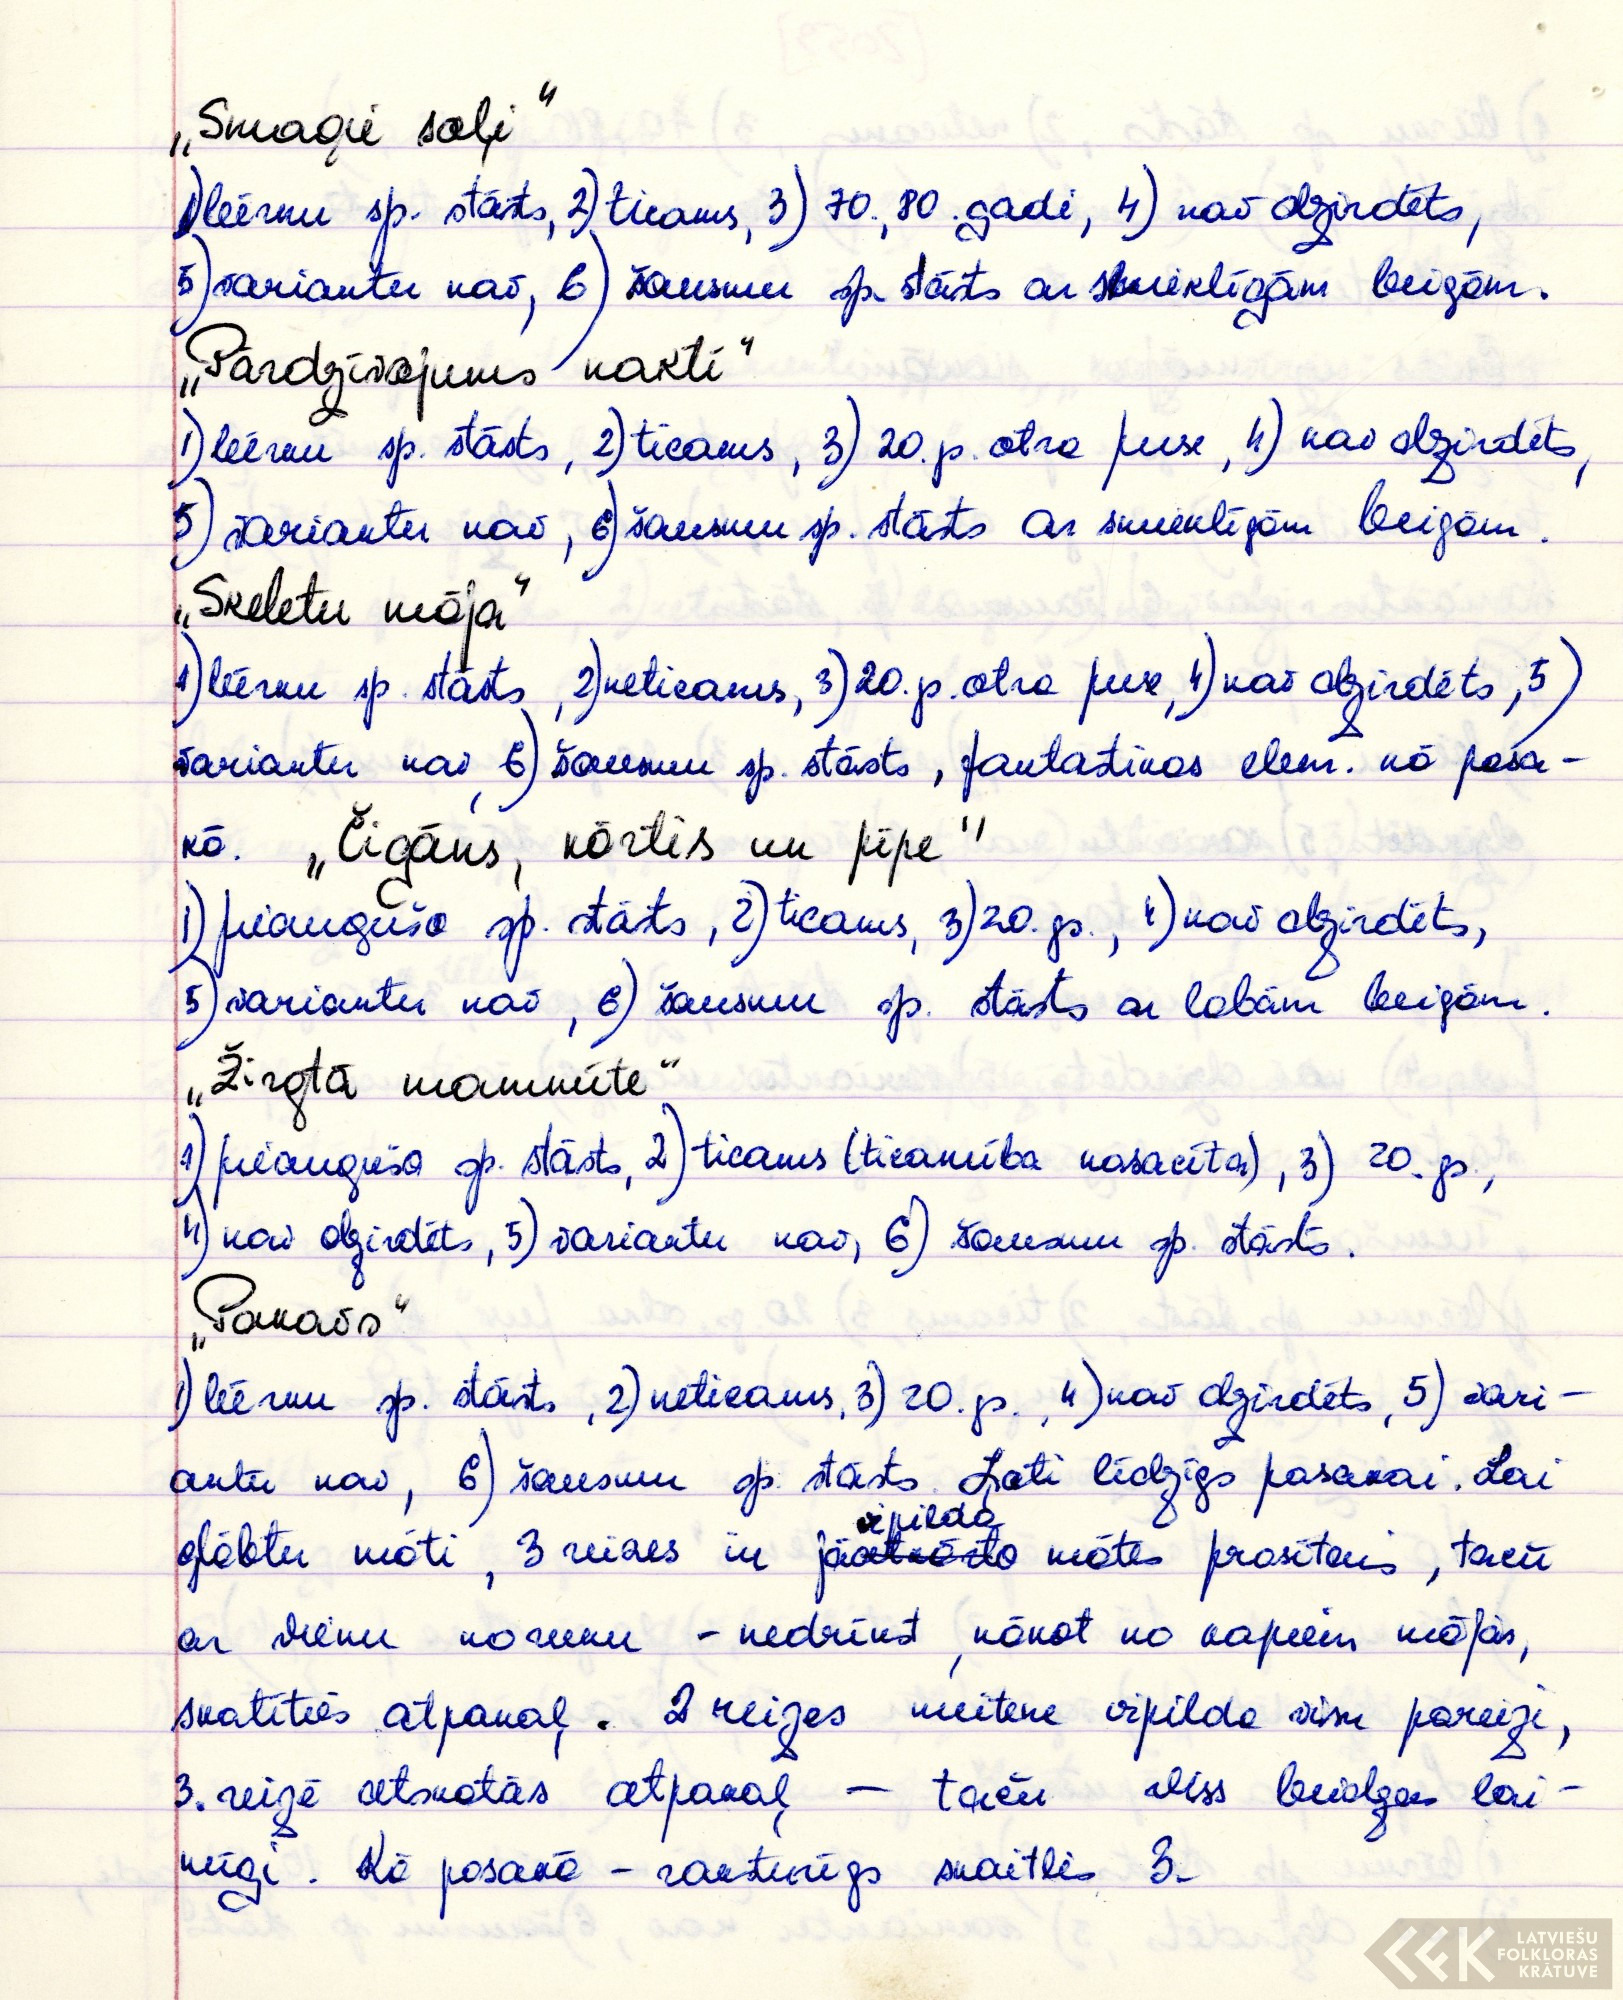 „Smagie soļi“
1) bērnu sp. stāsts, 2) ticams, 3) 70., 80. gadi, 4) nav dzirdēts,
5) variantu nav, 6) šausmu sp. stāsts ar smieklīgām beigām.
„Pārdzīvojums naktī“
1) bērnu sp. stāsts, 2) ticams, 3) 20. g. otra puse, 4) nav dzirdēts,
5) variantu nav, 6) šausmu sp. stāsts ar smieklīgām beigām.
„Skeletu māja“
1) bērnu sp. stāsts, 2) neticams, 3) 20. g. otra puse, 4) nav dzirdēts, 5)
variantu nav, 6) šausmu sp. stāsts, fantastikas elem. kā pasa-
kā. „Čigāns, kārtis un pīpe“
1) pieaugušo sp. stāsts, 2) ticams, 3) 20. gs., 4) nav dzirdēts,
5) variantu nav, 6) šausmu sp. stāsts ar labām beigām.
„Žirgtā mammīte“
1) pieaugušo sp. stāsts, 2) ticams (ticamība nosacīta), 3) 20. gs.,
4) nav dzirdēts, 5) variantu nav, 6) šausmu sp. stāsts.
„Pakavs“
1) bērnu sp. stāsts, 2) neticams, 3) 20. gs., 4) nav dzirdēts, 5) vari-
antu nav, 6) šausmu sp. stāsts. Ļoti līdzīgs pasakai. Lai
glābtu māti, 3 reizes ir jāizpilda mātes prasītais, taču
ar vienu norunu - nedrīkst, nākot no kapiem mājās,
skatīties atpakaļ. 2 reizes meitene izpilda visu pareizi,
3. reizē atskatās atpakaļ — taču viss beidzas lai-
mīgi. Kā pasakā - raksturīgs skaitlis 3.
LATVIEŠU
FOLKLORAS
KRĀTUVE